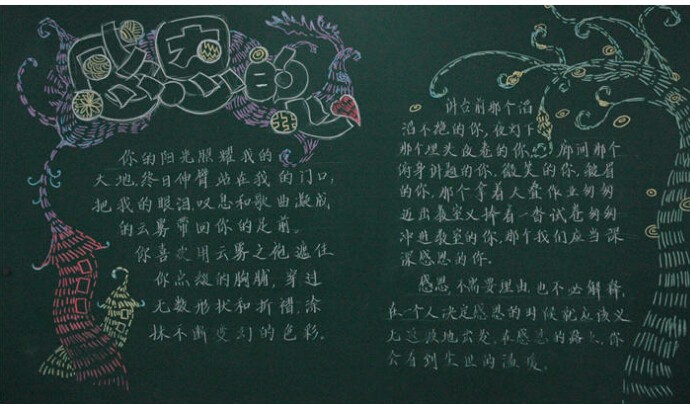 你的阳光照耀我的
大地,终日伸臂站在我的门口,
把我的眼泪叹息和歌曲凝成
的云雾带回你的足前。
你喜欢用云雾之袍遮住
你点缀的胸脯,穿过
无数形状和折褶,涂
抹不断变幻的色彩。
讲台前那个滔
滔不绝的你,夜灯下
那个埋头夜卷的你,廊间那个
俯身讲题的你,微笑的你,皱眉
的你,那个拿着大叠作业匆匆
迈出教室又捧着一沓试卷匆匆
冲进教室的你,那个我们应当深
深感恩的你。
感恩,不需要理由,也不必解释,
在一个人决定感恩的时候就应该义
无返顾地出发,在感恩的路上,你
会看到尘世的温度。